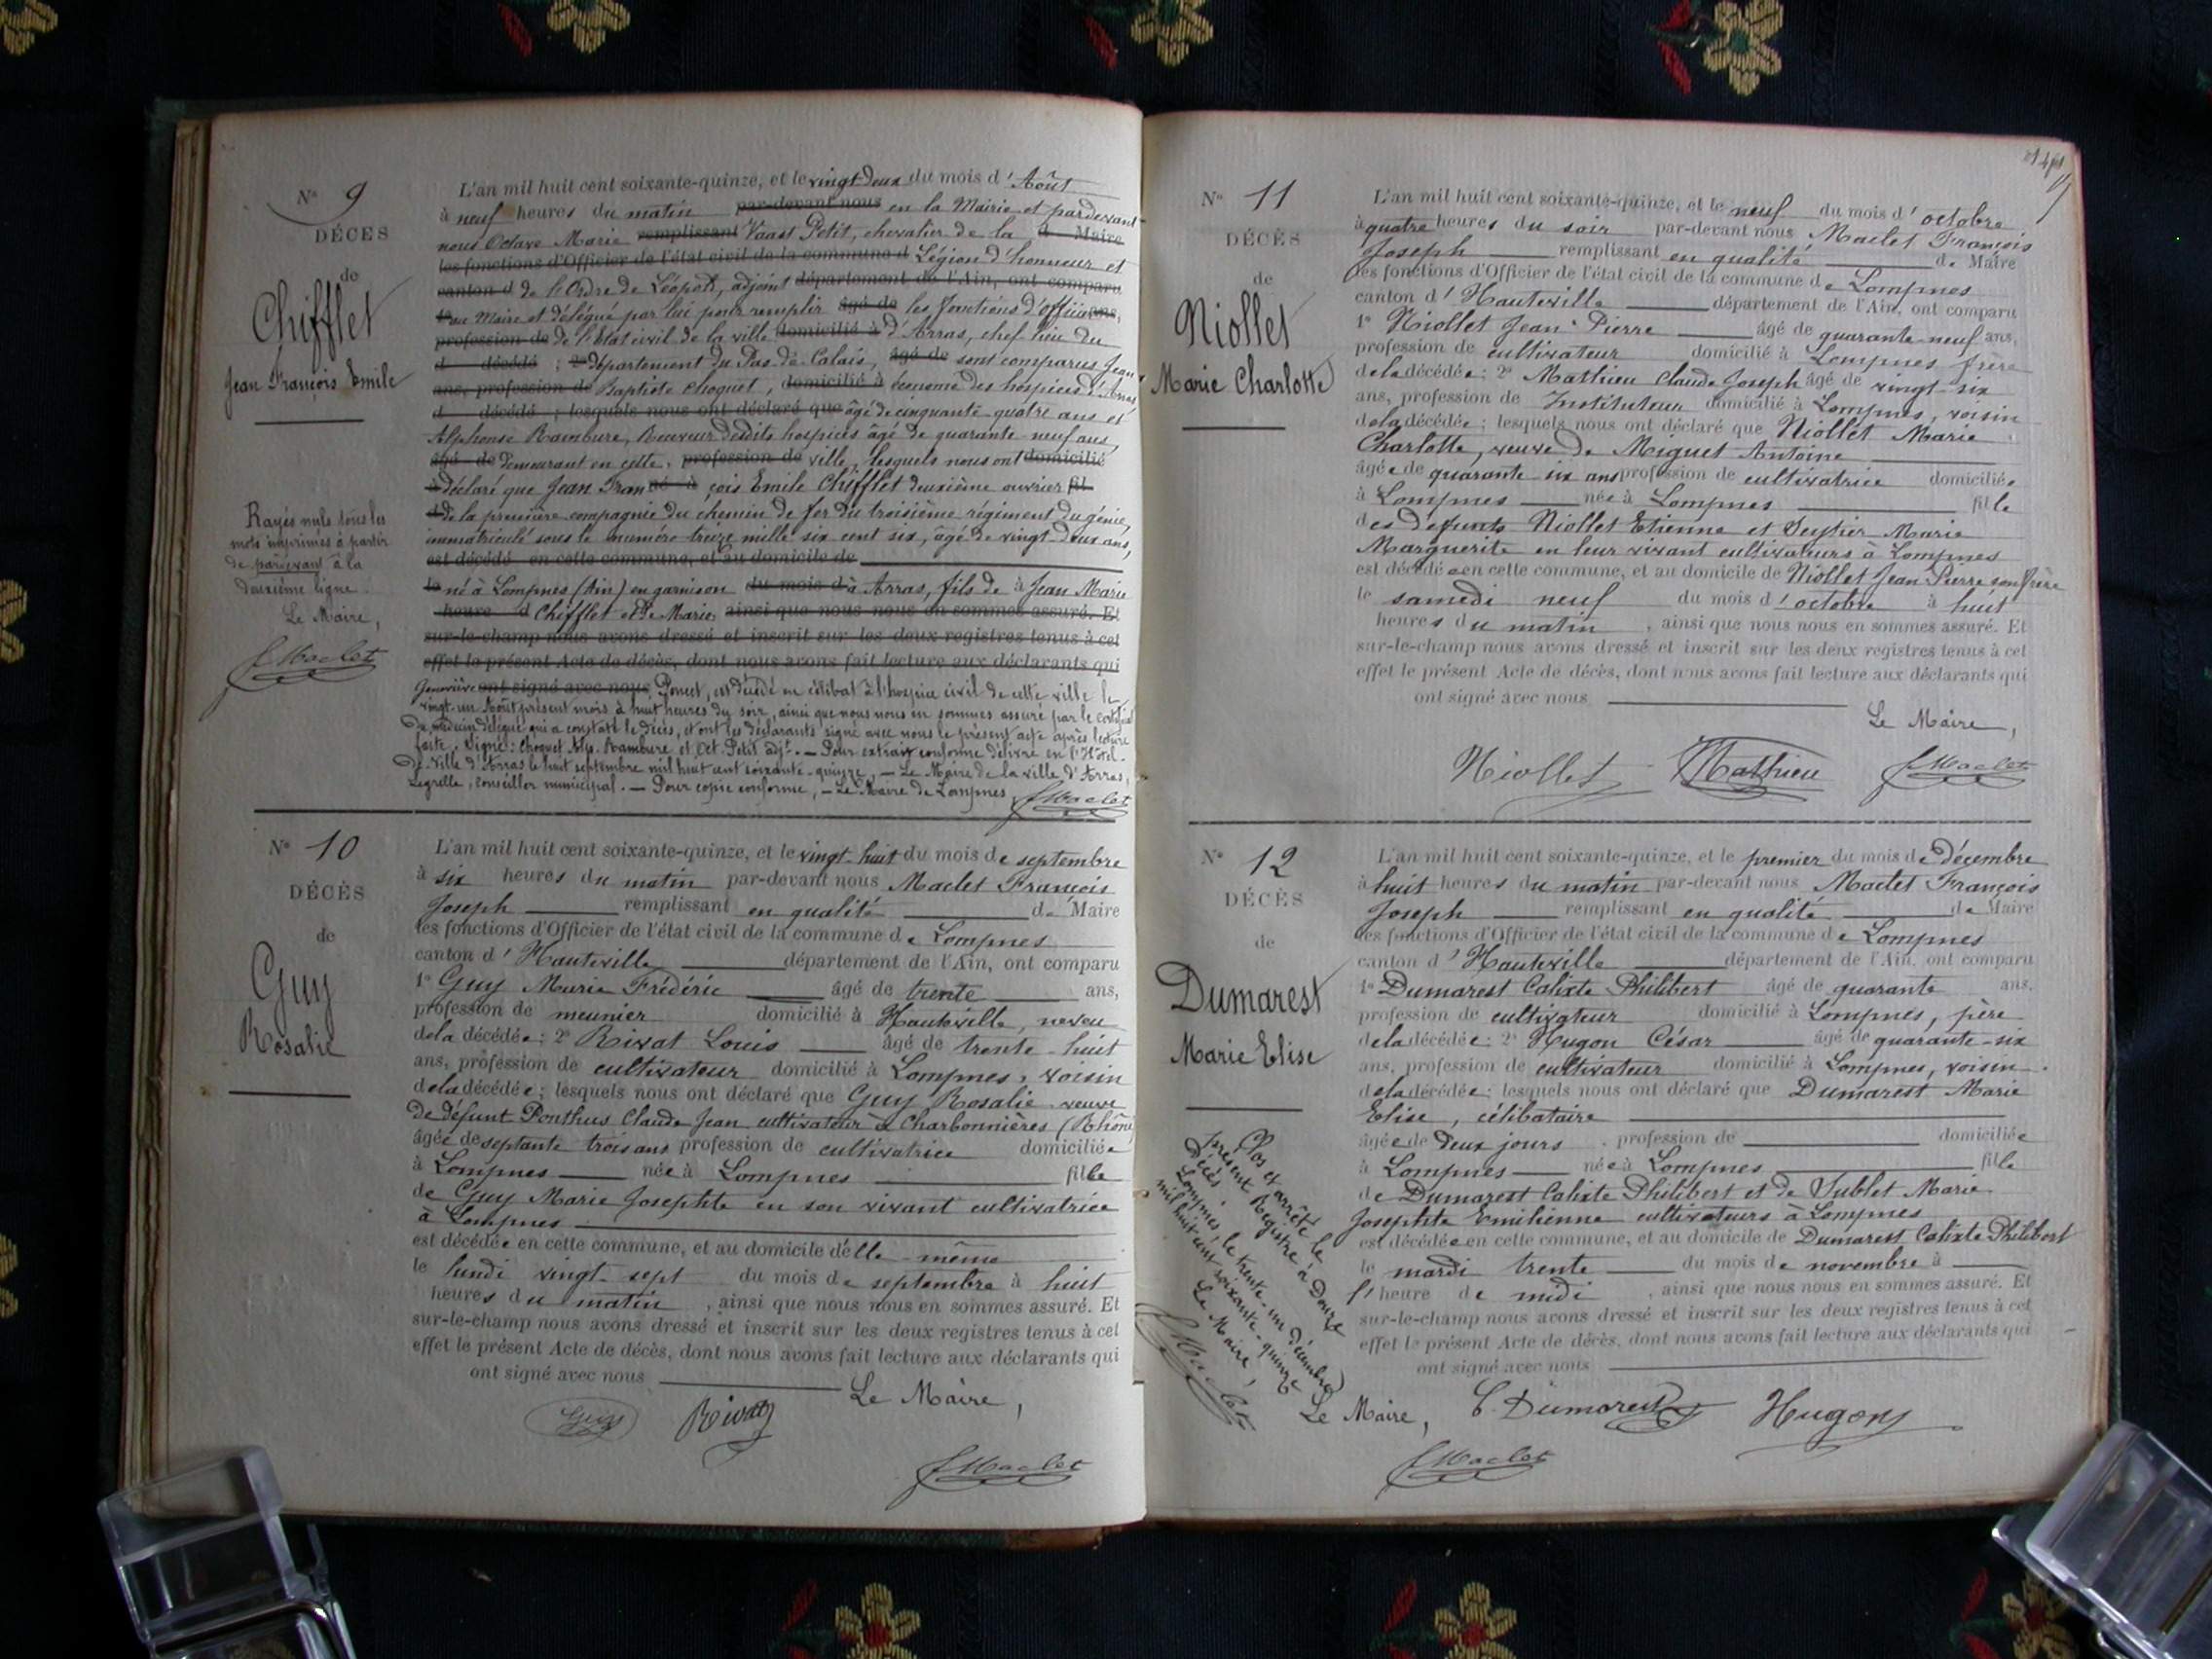 N° 9
DÉCÈS
de
Chifflet
Jean François Emile
Rayés nuls tous les
mots imprimés à partir
de pardevant à la
deuxième ligne.
Le Maire,
f Maclet
L'an mil huit cent soixante-quinze, et le vingt-deux du mois d'Août
à neuf heures du matin par-devant nous en la Mairie et pardevant
nous Octave Marie remplissant Vaast Petit, chevalier de la d Maire
les fonctions d'Officier de l'état civil de la commune d Légion d'honneur et
canton d de l'Ordre de Léopold, adjoint département de l'Ain, ont comparu
1° au Maire et délégué par lui pour remplir âgé de les fonctions d'officier ans,
profession de de l'Etat civil de la ville domicilié à d'Arras, chef lieu du
d décédé ; 2° département du Pas-de-Calais, âgé de sont comparus Jean
ans, profession de Baptiste Choquet, domicilié à économe des hospices d'Arras
d décédé ; lesquels nous ont déclaré que âgé de cinquante-quatre ans et
Alphonse Rambure, Receveur desdits hospices âgé de quarante neuf ans,
âgé de demeurant en cette profession de ville, lesquels nous ont domicilié
à déclaré que Jean Fran né à çois Emile Chifflet deuxième ouvrier fil
d de la première compagnie du chemin de fer du troisième régiment du génie,
immatriculé sous le numéro treize mille six cent six, âgé de vingt-deux ans,
est décédé en cette commune, et au domicile de
le né à Lompnes (Ain) en garnison du mois d à Arras, fils de à Jean Marie
heure d Chifflet et de Marie ainsi que nous nous en sommes assuré. Et
sur-le-champ nous avons dressé et inscrit sur les deux registres tenus à cet
effet le présent Acte de décès, dont nous avons fait lecture aux déclarants qui
Geneviève ont signé avec nous Poncet, est décédé en célibat à l'hospice civil de cette ville le
vingt-un Août présent mois à huit heures du soir, ainsi que nous nous en sommes assuré par le certificat
du médecin délégué qui a constaté le décès, et ont les déclarants signé avec nous le présent acte après lecture
faite. Signé : Choquet Alp. Rambure et Oct. Petit adjt. — Pour extrait conforme délivré en l'Hôtel-
de-Ville d'Arras le huit septembre mil huit cent soixante-quinze, — Le Maire de la ville d'Arras,
Legrelle, conseiller municipal. — Pour copie conforme, — Le Maire de Lompnes, f Maclet
N° 10
DÉCÈS
de
Guy
Rosalie
L'an mil huit cent soixante-quinze, et le vingt-huit du mois de septembre
à six heures du matin par-devant nous Maclet François
Joseph remplissant en qualité de Maire
les fonctions d'Officier de l'état civil de la commune de Lompnes
canton d'Hauteville département de l'Ain, ont comparu
1° Guy Marie Frédéric âgé de trente ans,
profession de meunier domicilié à Hauteville, neveu
de la décédée ; 2° Rivat Louis âgé de trente-huit
ans, profession de cultivateur domicilié à Lompnes, voisin
de la décédée ; lesquels nous ont déclaré que Guy Rosalie veuve
de défunt Ponthus Claude Jean cultivateur à Charbonnières (Rhône)
âgée de septante trois ans profession de cultivatrice domiciliée
à Lompnes née à Lompnes fille
de Guy Marie Josephte en son vivant cultivatrice
à Lompnes
est décédée en cette commune, et au domicile d'elle-même
le lundi vingt-sept du mois de septembre à huit
heures du matin, ainsi que nous nous en sommes assuré. Et
sur-le-champ nous avons dressé et inscrit sur les deux registres tenus à cet
effet le présent Acte de décès, dont nous avons fait lecture aux déclarants qui
ont signé avec nous
Le Maire,
Guy Rivat
f Maclet
N° 11
DÉCÈS
de
Niollet
Marie Charlotte
L'an mil huit cent soixante-quinze, et le neuf du mois d'octobre
à quatre heures du soir par-devant nous Maclet François
Joseph remplissant en qualité de Maire
les fonctions d'Officier de l'état civil de la commune de Lompnes
canton d'Hauteville département de l'Ain, ont comparu
1° Niollet Jean-Pierre âgé de quarante-neuf ans,
profession de cultivateur domicilié à Lompnes frère
de la décédée ; 2° Mathieu Claude Joseph âgé de vingt-six
ans, profession de Instituteur domicilié à Lompnes, voisin
de la décédée ; lesquels nous ont déclaré que Niollet Marie
Charlotte, veuve de Miguet Antoine
âgée de quarante six ans profession de cultivatrice domiciliée
à Lompnes née à Lompnes fille
des défunts Niollet Etienne et Seytier Marie
Marguerite en leur vivant cultivateurs à Lompnes
est décédée en cette commune, et au domicile de Niollet Jean Pierre son frère
le samedi neuf du mois d'octobre à huit
heures du matin, ainsi que nous nous en sommes assuré. Et
sur-le-champ nous avons dressé et inscrit sur les deux registres tenus à cet
effet le présent Acte de décès, dont nous avons fait lecture aux déclarants qui
ont signé avec nous
Le Maire,
Niollet Mathieu f Maclet
N° 12
DÉCÈS
de
Dumarest
Marie Elise
Clos et arrêté le
présent Registre à Douze
Décès.
Lompnes, le trente-un décembre
mil huit cent soixante-quinze
Le Maire,
f Maclet
L'an mil huit cent soixante-quinze, et le premier du mois de décembre
à huit heures du matin par-devant nous Maclet François
Joseph remplissant en qualité de Maire
les fonctions d'Officier de l'état civil de la commune de Lompnes
canton d'Hauteville département de l'Ain, ont comparu
1° Dumarest Calixte Philibert âgé de quarante ans,
profession de cultivateur domicilié à Lompnes, père
de la décédée ; 2° Hugon César âgé de quarante-six
ans, profession de cultivateur domicilié à Lompnes, voisin
de la décédée ; lesquels nous ont déclaré que Dumarest Marie
Elise, célibataire
âgée de deux jours profession de domiciliée
à Lompnes née à Lompnes fille
de Dumarest Calixte Philibert et de Sublet Marie
Josephte Emilienne cultivateurs à Lompnes
est décédée en cette commune, et au domicile de Dumarest Calixte Philibert
le mardi trente du mois de novembre à
l'heure de midi, ainsi que nous nous en sommes assuré. Et
sur-le-champ nous avons dressé et inscrit sur les deux registres tenus à cet
effet le présent Acte de décès, dont nous avons fait lecture aux déclarants qui
ont signé avec nous
Le Maire, C. Dumarest Hugon
f Maclet